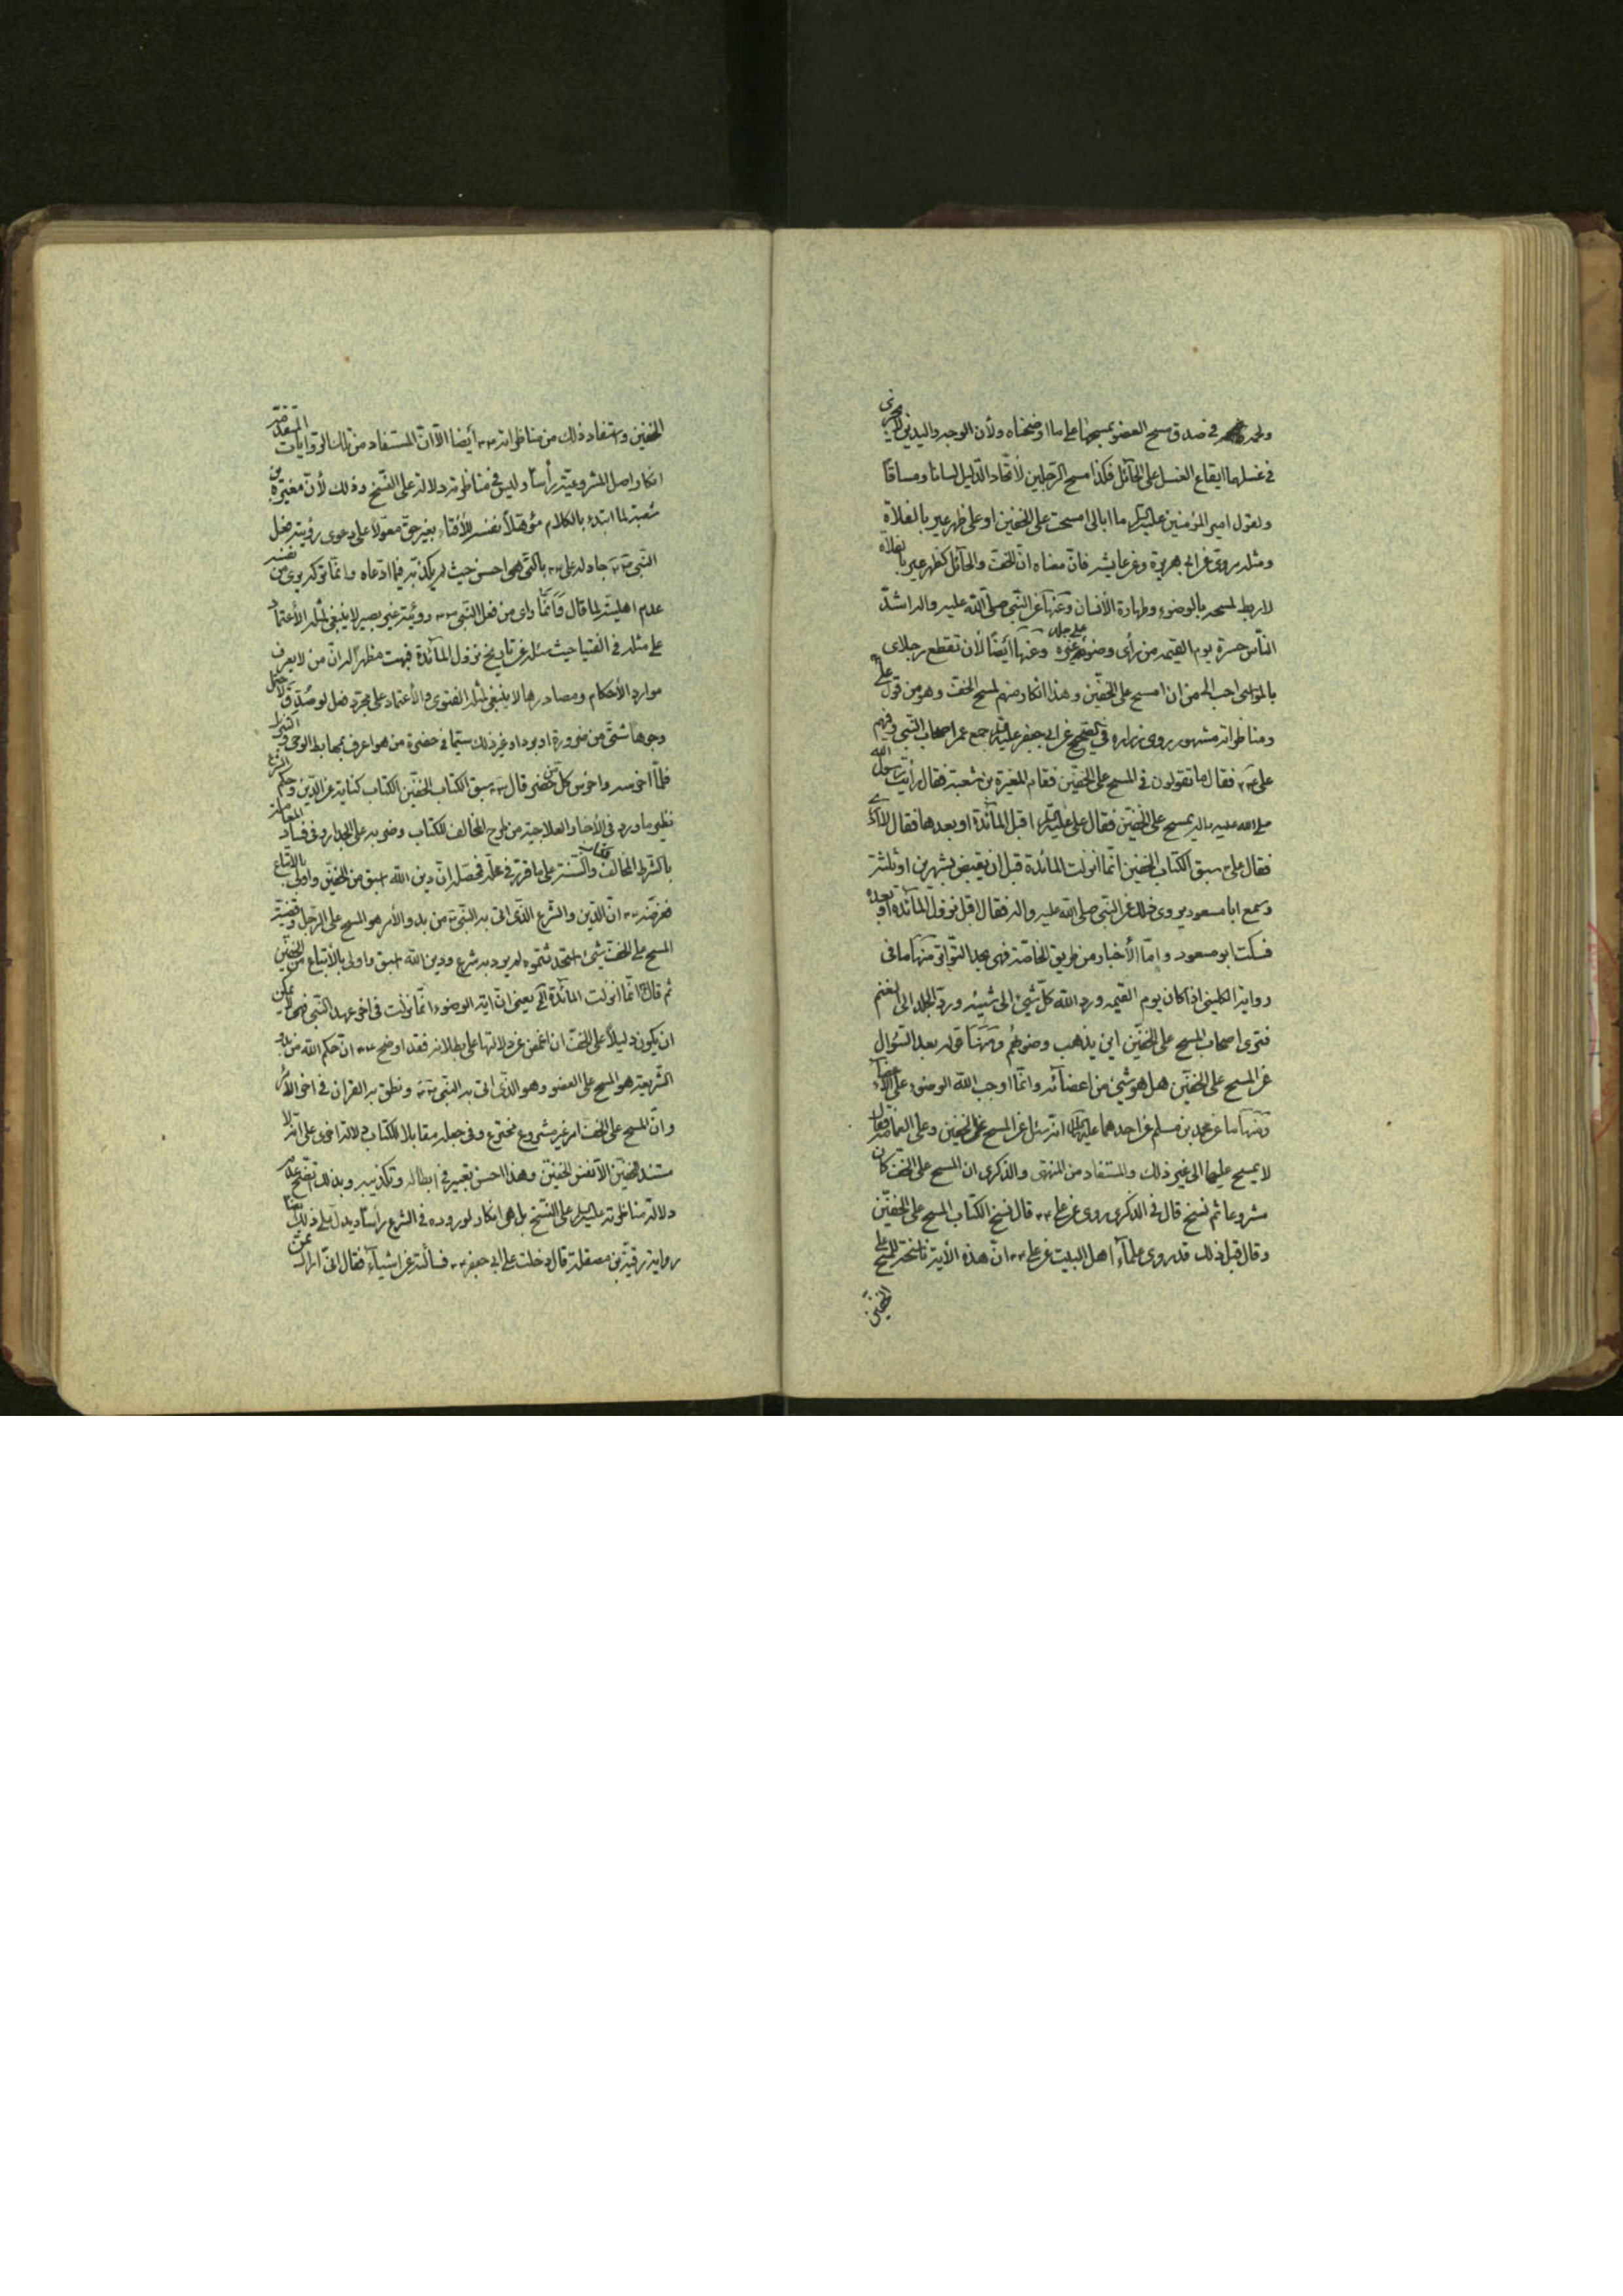 في صدق مسح العضو بمسحها على ما اوضحناه ولأن الوجه واليدين لا يجزى
في غسلهما ايقاع الغسل على الحائل فكذا مسح الرجلين لأتحاد الدّليل لسانا ومساقا
ولقول امير المؤمنين عليه السلام ما ابالى امسحت على الخفين او على ظهر عير بالفلاة
ومثله روى عن ابى هريرة وعن عايشه فانّ معناه انّ الخف والحائل كظهر عير بالفلاة
لا ربط لمسحه بالوضوء وطهارة الأنسان وعنها عن النّبي صلّى الله عليه واله اشدّ
النّاس حسرة يوم القيمه من رأى وضوئه على جلد غيره وعنها أيضا لأن تقطع رجلاى
بالمواسى احب الى من ان امسح على الخفين وهذا انكار منهم لمسح الخف وهو من قول على
ومناظراته مشهوره روى زراره في الصحيح عن ابى جعفر عليه السلام قال جمع عمر اصحاب النّبي وفيهم
على ع فقال ما تقولون في المسح على الخفين فقام المغيرة بن شعبة فقال رأيت رسول الله
صلى الله عليه واله يمسح على الخفين فقال على عليه السلام اقبل المائدة او بعدها فقال لا ادرى
فقال على ع سبق الكتاب الخفين انّما انزلت المائدة قبل ان يقبض بشهرين او ثلثة
وسمع ابا مسعود يروى ذلك عن النبي صلى الله عليه واله فقال اقبل نزول المائدة او بعده
فسكت ابو مسعود وامّا الأخبار من طريق الخاصّة فهى بحد التّواتر منها ما فى
رواية الكلينى اذا كان يوم القيمه ورد الله كلّ شيئ الى شيئه وردّ الجلد الى الغنم
فترى اصحاب المسح على الخفين اين يذهب وضوئهم ومنها قوله بعد السّؤال
عن المسح على الخفين هل هو شيئ من اعضائه وانّما اوجب الله الوضوء على الأعضاء
ومنها ما عن محمد بن مسلم عن احدهما عليهما السلام انّه سئل عن المسح على الخفين وعلى العمامة فقال
لا يمسح عليهما الى غير ذلك والمستفاد من المنتهى والذكرى ان المسح على الخف كان
مشروعا ثم نسخ قال في الذكرى روى عن على ع قال نسخ الكتاب المسح على الخفين
وقال قبل ذلك قد روى علماء اهل البيت عن على ع انّ هذه الأية ناسخة للمسح على
الخفين
الخفين واستفاد ذلك من مناظراته ع أيضا الّا انّ المستفاد من تلك الرّوايات المتقدّمة
انكار اصل المشروعيّة رأسا وليس في مناظرته دلالة على النّسخ وذلك لأنّ مغيرة بن
شعبة لما ابتدء بالكلام مؤهّلا نفسه للأفتاء بغير حقّ معوّلا على دعوى رؤيته فعل
النّبي ص جادله على ع بالّتى هى احسن حيث لم يكذّبه فيما ادّعاه وانّما توكيد بوى من نفسه
عدم اهليّته لما قال وانّما راى من فعل النّبي ص رؤية غير بصير لا ينبغى لمثله الأعتماد
على مثله في الفتيا حيث سئله عن تاريخ نزول المائدة فبهت مظهرا له انّ من لا يعرف
موارد الأحكام ومصادرها لا ينبغى لمثله الفتوى والأعتماد على مجرّد فعل لو صدق لاحتمل
وجوها شتّى من ضرورة او برد او غير ذلك سيّما في حضرة من هو اعرف بمهابط الوحى
فلمّا اخرسه واخرس كلّ من حضر قال ع سبق الكتاب الخفين الكتاب كناية عن الدّين وحكم الشرع
نظير ما ورد فى الأخبار العلاجية من طرح المخالف للكتاب وضربه على الجدار وفى فساد المعاملة
بالشّرط المخالف للكتاب والسّنة على ما قرّر في محلّه فمحصّله انّ دين الله اسبق من الخفين واولى بالأتباع
فغرضه ع انّ الدّين والشّرع الّذى اتى به النّبي ص من بدو الأمر هو المسح على الرّجل وقضيّة
المسح على الخف شيئ استجد ثتموه لم يرد به شرع ودين الله اسبق واولى بالأتباع من الخفين
ثم قال ع انّما انزلت المائدة الخ يعنى انّ اية الوضوء انّما نزلت فى اخر عهد النّبي فهى لا يمكن
ان يكون دليلا على الخف ان اغمض عن دلالتها على بطلانه فقد اوضح ع انّ حكم الله من بدو
الشّريعة هو المسح على العضو وهو الّذى اتى به النّبي ص ونطق به القران في اخر الأمر
وانّ المسح على الخف امر غير مشروع مخترع وفى جعله مقابلا للكتاب دلالة اخرى على انّه لا
مستند للخفين الّا نفس الخفين وهذا احسن تعبير في ابطاله وتكذيبه وبذلك اتّضح عدم
دلالة مناظرته عليه السلام على النّسخ بل هى انكار لوروده في الشرع رأسا ويدلّ على ذلك أيضا
رواية رقبة بن مصقلة قال دخلت على ابى جعفر ع فسألته عن اشياء فقال انّى اراك ممّن